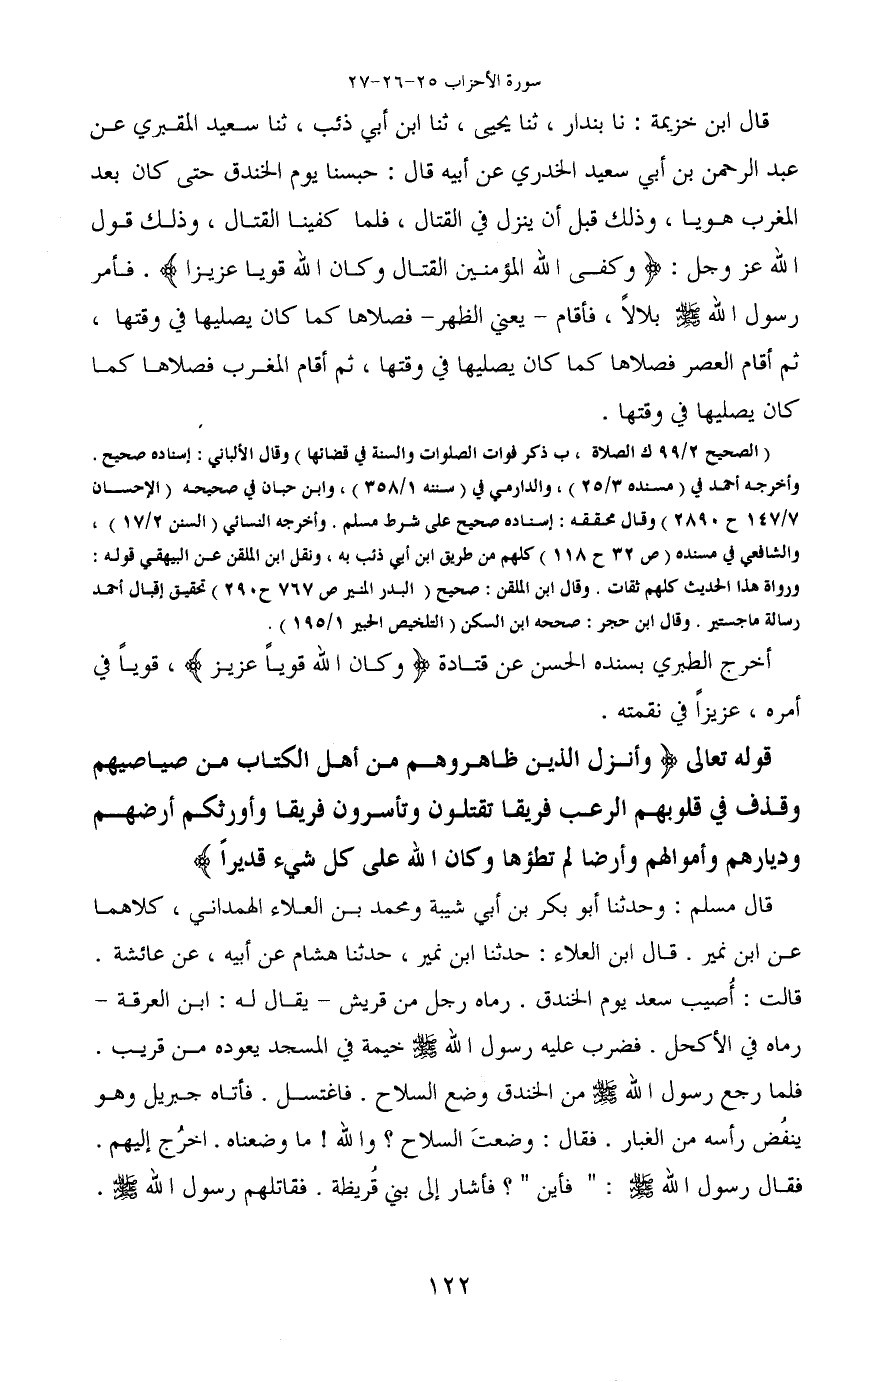 سورة الأحزاب ٢٥-٢٦-٢٧
قال ابن خزيمة : نا بندار ، ثنا يحيى ، ثنا ابن أبي ذئب ، ثنا سعيد المقبري عن
عبد الرحمن بن أبي سعيد الخدري عن أبيه قال : حبسنا يوم الخندق حتى كان بعد
المغرب هويا ، وذلك قبل أن ينزل في القتال ، فلما كفينا القتال ، وذلك قول
الله عز وجل : ﴿ وكفى الله المؤمنين القتال وكان الله قويا عزيزا ﴾ . فأمر
رسول الله ﷺ بلالاً ، فأقام - يعني الظهر- فصلاها كما كان يصليها في وقتها ،
ثم أقام العصر فصلاها كما كان يصليها في وقتها ، ثم أقام المغرب فصلاها كما
كان يصليها في وقتها .
( الصحيح ٩٩/٢ ك الصلاة ، ب ذكر فوات الصلوات والسنة في قضائها ) وقال الألباني : إسناده صحيح .
وأخرجه أحمد في ( مسنده ٢٥/٣ ) ، والدارمي في ( سننه ٣٥٨/١ ) ، وابن حبان في صحيحه ( الإحسان
١٤٧/٧ ح ٢٨٩٠ ) وقال محققه : إسناده صحيح على شرط مسلم . وأخرجه النسائي ( السنن ١٧/٢ ) ،
والشافعي في مسنده ( ص ٣٢ ح ١١٨ ) كلهم من طريق ابن أبي ذئب به ، ونقل ابن الملقن عن البيهقي قوله :
ورواة هذا الحديث كلهم ثقات . وقال ابن الملقن : صحيح ( البدر المنير ص ٧٦٧ ح٢٩٠ ) تحقيق إقبال أحمد
رسالة ماجستير . وقال ابن حجر : صححه ابن السكن ( التلخيص الحبير ١٩٥/١ ) .
أخرج الطبري بسنده الحسن عن قتادة ﴿ وكان الله قوياً عزيز ﴾ ، قوياً في
أمره ، عزيزاً في نقمته .
قوله تعالى ﴿ وأنزل الذين ظاهروهم من أهل الكتاب من صياصيهم
وقذف في قلوبهم الرعب فريقا تقتلون وتأسرون فريقا وأورثكم أرضهم
وديارهم وأموالهم وأرضا لم تطؤها وكان الله على كل شيء قديراً ﴾
قال مسلم : وحدثنا أبو بكر بن أبي شيبة ومحمد بن العلاء الهمداني ، كلاهما
عن ابن نمير . قال ابن العلاء : حدثنا ابن نمير ، حدثنا هشام عن أبيه ، عن عائشة .
قالت : أُصيب سعد يوم الخندق . رماه رجل من قريش - يقال له : ابن العرقة -
رماه في الأكحل . فضرب عليه رسول الله ﷺ خيمة في المسجد يعوده من قريب .
فلما رجع رسول الله ﷺ من الخندق وضع السلاح . فاغتسل . فأتاه جبريل وهو
ينفُض رأسه من الغبار . فقال : وضعتَ السلاح ؟ والله ! ما وضعناه . اخرُج إليهم .
فقال رسول الله ﷺ : " فأين " ؟ فأشار إلى بني قُريظة . فقاتلهم رسول الله ﷺ .
١٢٢